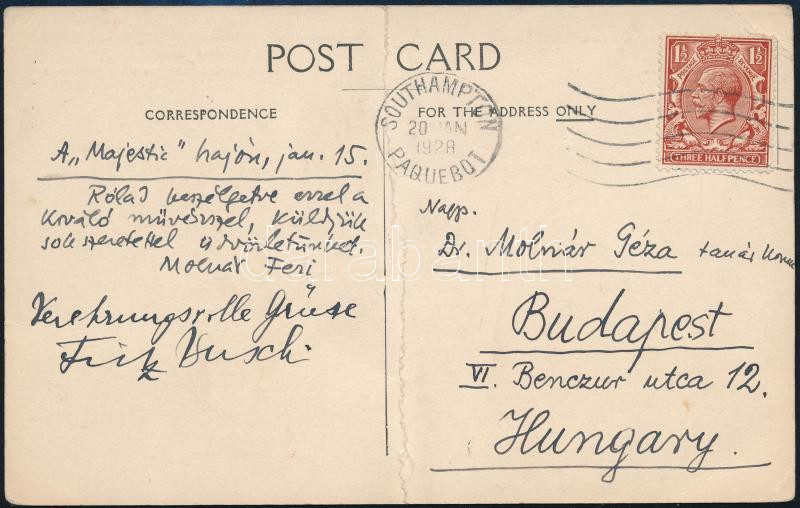 POST CARD
CORRESPONDENCE
FOR THE ADDRESS ONLY
SOUTHAMPTON
20 JAN
1928
PAQUEBOT
POSTAGE REVENUE
1½ 1½
THREE HALFPENCE
A „Majestic" hajón, jan. 15.
Rólad beszélgetve ezzel a
kiváló művésszel, küldjük
sok szeretettel üdvözletünket.
Molnár Feri
Verehrungsvolle Grüsse
Fritz Busch
Nagys.
Dr. Molnár Géza tanár
Budapest
VI. Benczur utca 12.
Hungary.
darabanth